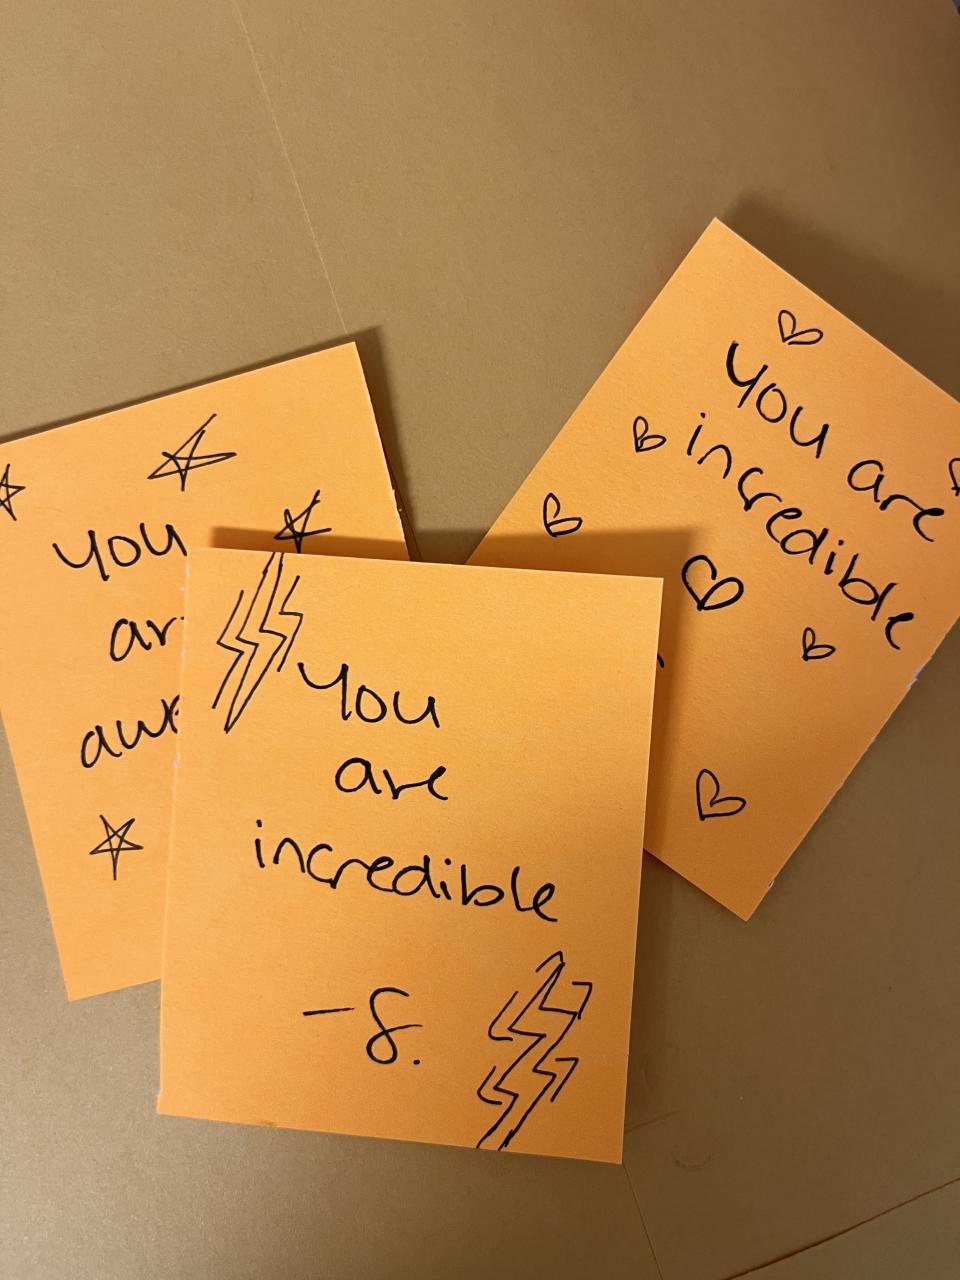 you
you are
incredible
you
are
incredible
-S.